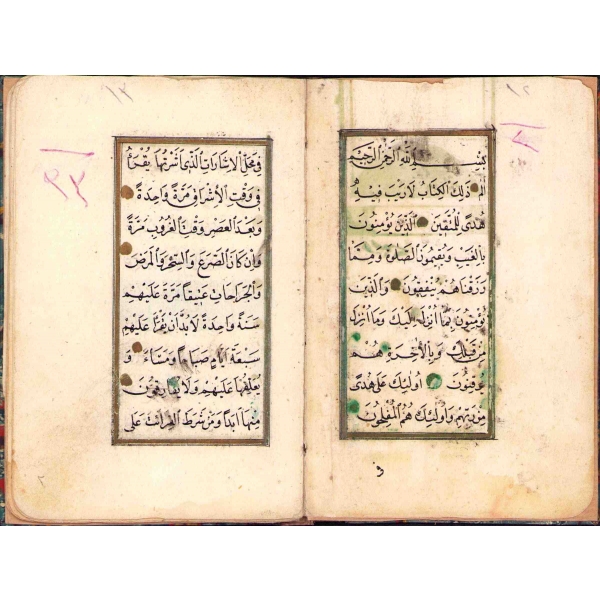 ١٢
بسم الله الرحمن الرحيم
الم ذلك الكتاب لا ريب فيه
هدى للمتقين الذين يؤمنون
بالغيب ويقيمون الصلاة ومما
رزقناهم ينفقون والذين
يؤمنون بما انزل اليك وما انزل
من قبلك وبالاخرة هم
يوقنون اولئك على هدى
من ربهم واولئك هم المفلحون
و
١٣
٣٣
في محل الاشارات الذي اشرتها يقرأ
في وقت الاشراق مرة واحدة
وبعد العصر وقت الغروب مرة
وان كان الصرع والسحر والمرض
والجراحات عتيقا مرة عليهم
سنة واحدة لا بد أن يقرأ عليهم
سبعة ايام صباحا ومساء و
يعلقها عليهم ولا يفارقون
منها ابدا ومن شرط القرائت على
٢